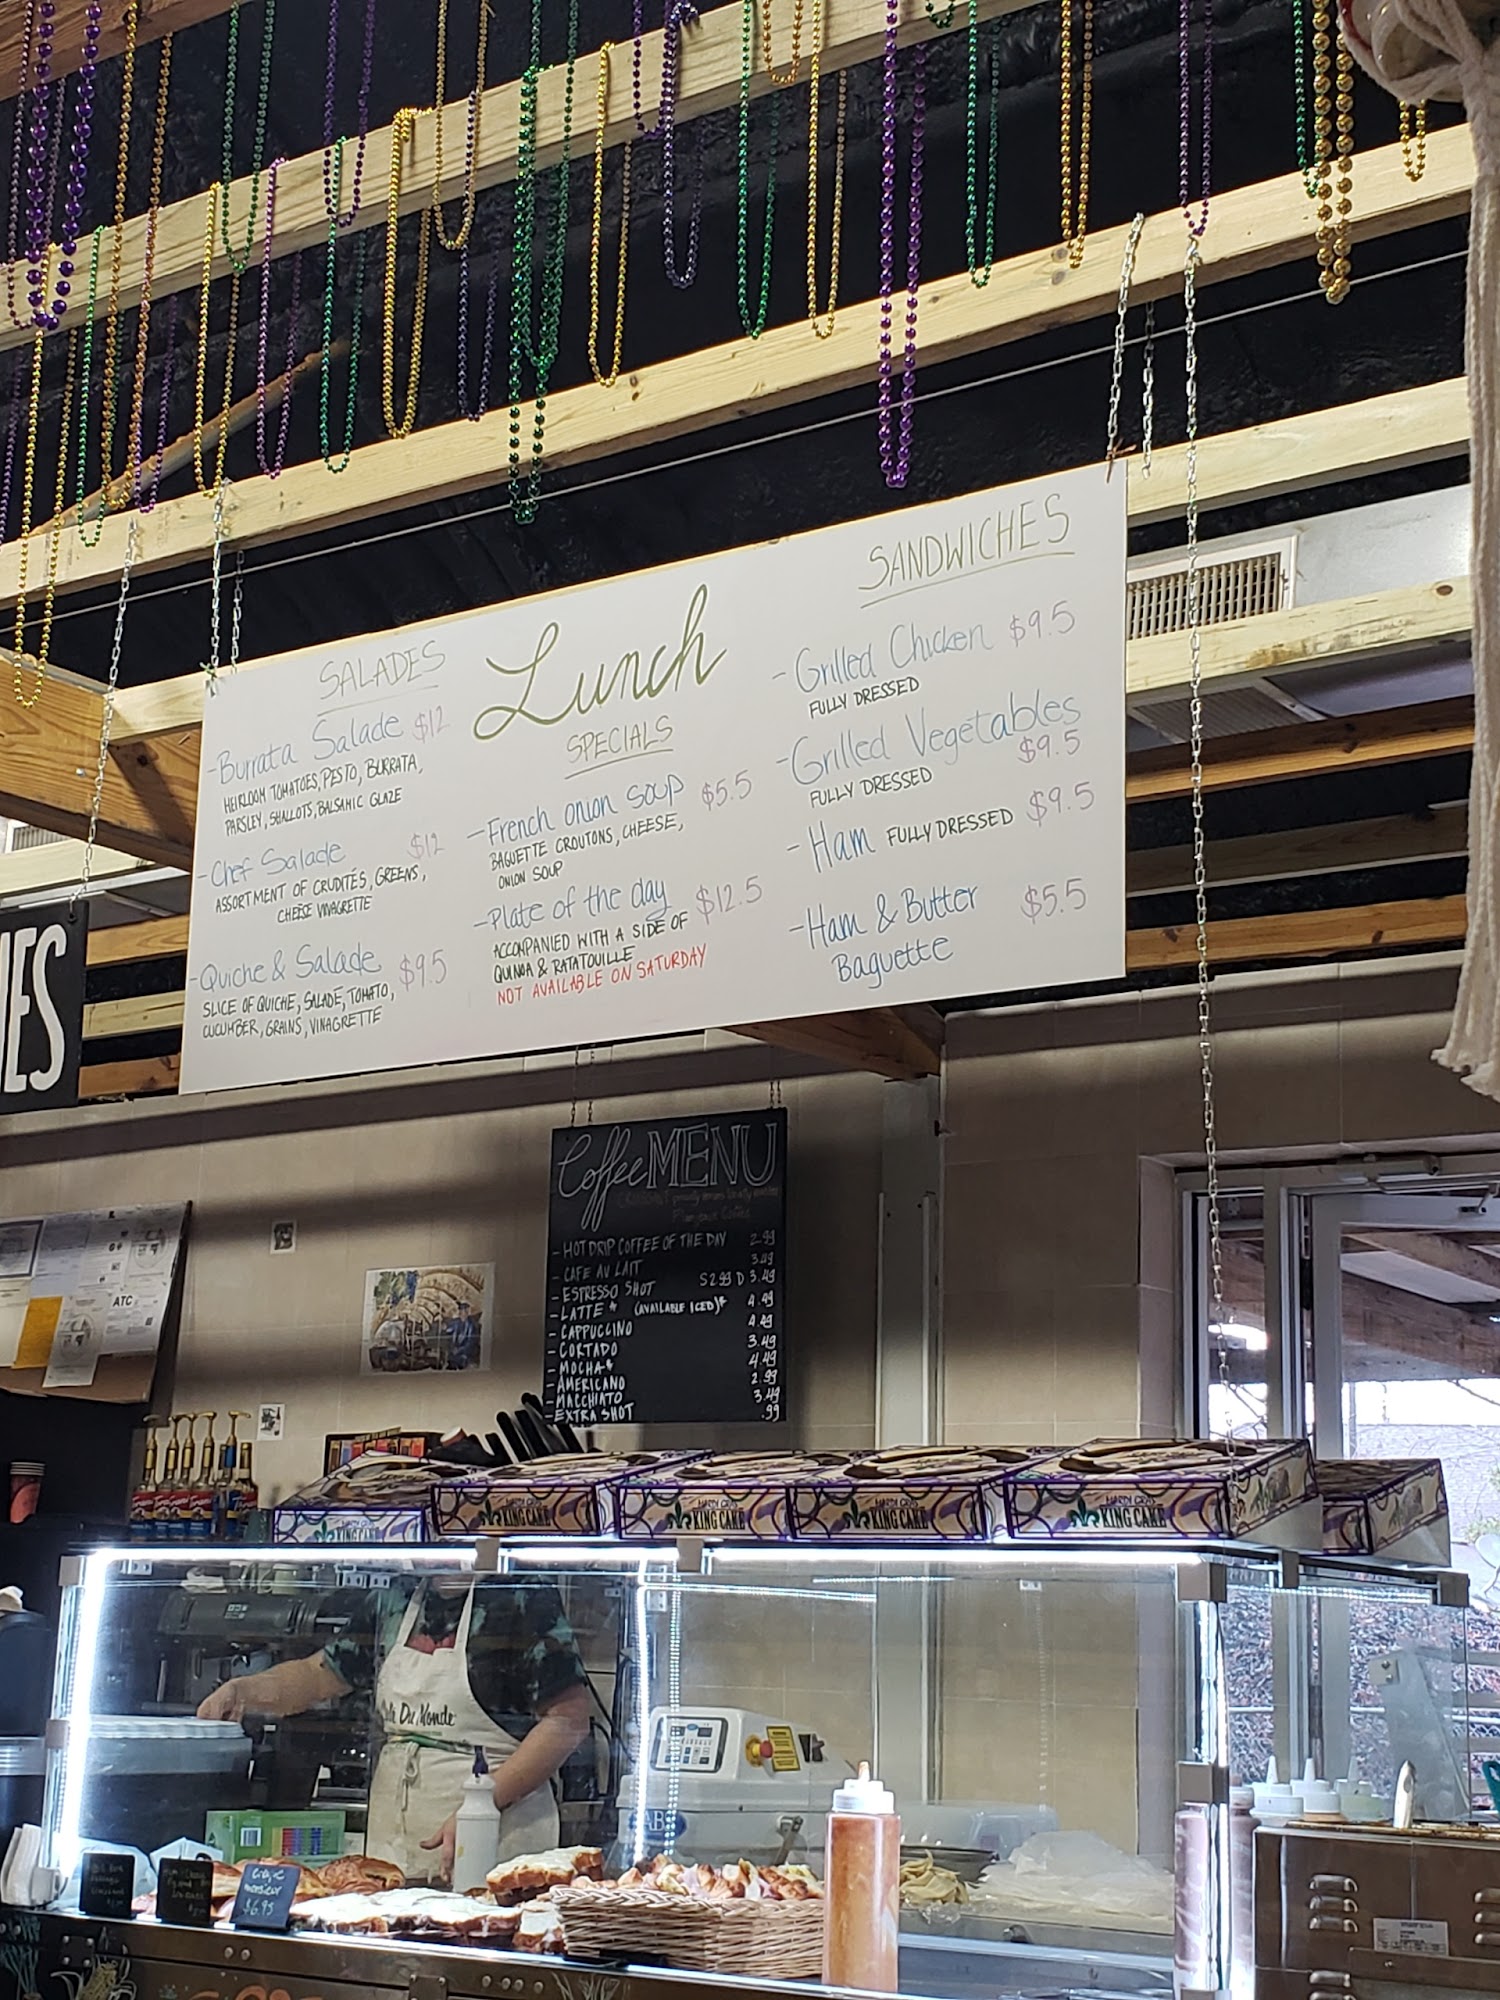 Lunch
SALADES
-Burrata Salade $12
HEIRLOOM TOMATOES, PESTO, BURRATA,
PARSLEY, SHALLOTS, BALSAMIC GLAZE
-Chef Salade $12
ASSORTMENT OF CRUDITÉS, GREENS,
CHEESE VINAGRETTE
-Quiche & Salade $9.5
SLICE OF QUICHE, SALADE, TOMATO,
CUCUMBER, GRAINS, VINAGRETTE
SPECIALS
-French onion soup $5.5
BAGUETTE CROUTONS, CHEESE,
ONION SOUP
-Plate of the day $12.5
ACCOMPANIED WITH A SIDE OF
QUINOA & RATATOUILLE
NOT AVAILABLE ON SATURDAY
SANDWICHES
-Grilled Chicken $9.5
FULLY DRESSED
-Grilled Vegetables
$9.5
FULLY DRESSED
-Ham FULLY DRESSED $9.5
-Ham & Butter $5.5
Baguette
IES
Coffee MENU
- HOT DRIP COFFEE OF THE DAY 2.99
- CAFE AU LAIT 3.49
- ESPRESSO SHOT S 2.99 D 3.49
- LATTE * (AVAILABLE ICED)* 4.49
- CAPPUCCINO 4.49
- CORTADO 3.49
- MOCHA* 4.49
- AMERICANO 2.99
- MACCHIATO 3.49
- EXTRA SHOT .99
ATC
MARDI GRAS
KING CAKE
MARDI GRAS
KING CAKE
MARDI GRAS
KING CAKE
MARDI GRAS
KING CAKE
MARDI GRAS
KING CAKE
Du Monde
$6.95